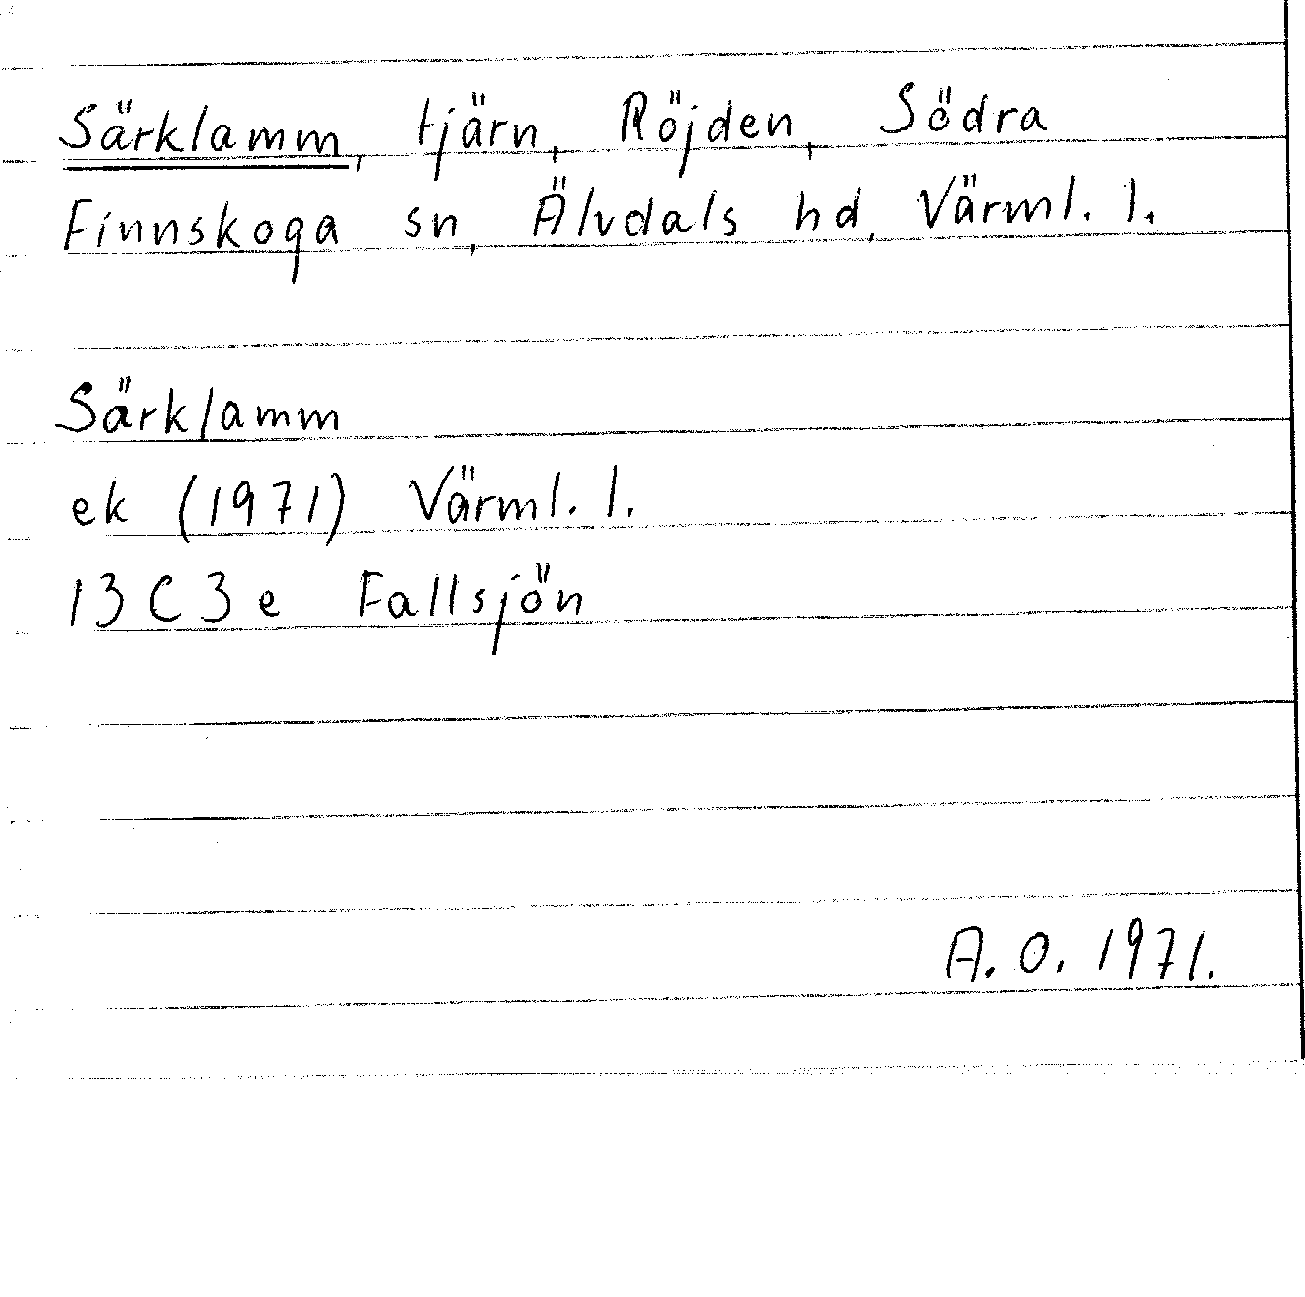 Särklamm, tjärn, Röjden, Södra
Finnskoga sn, Älvdals hd, Värml. l.
Särklamm
ek (1971) Värml. l.
13 C 3 e Fallsjön
A. O. 1971.